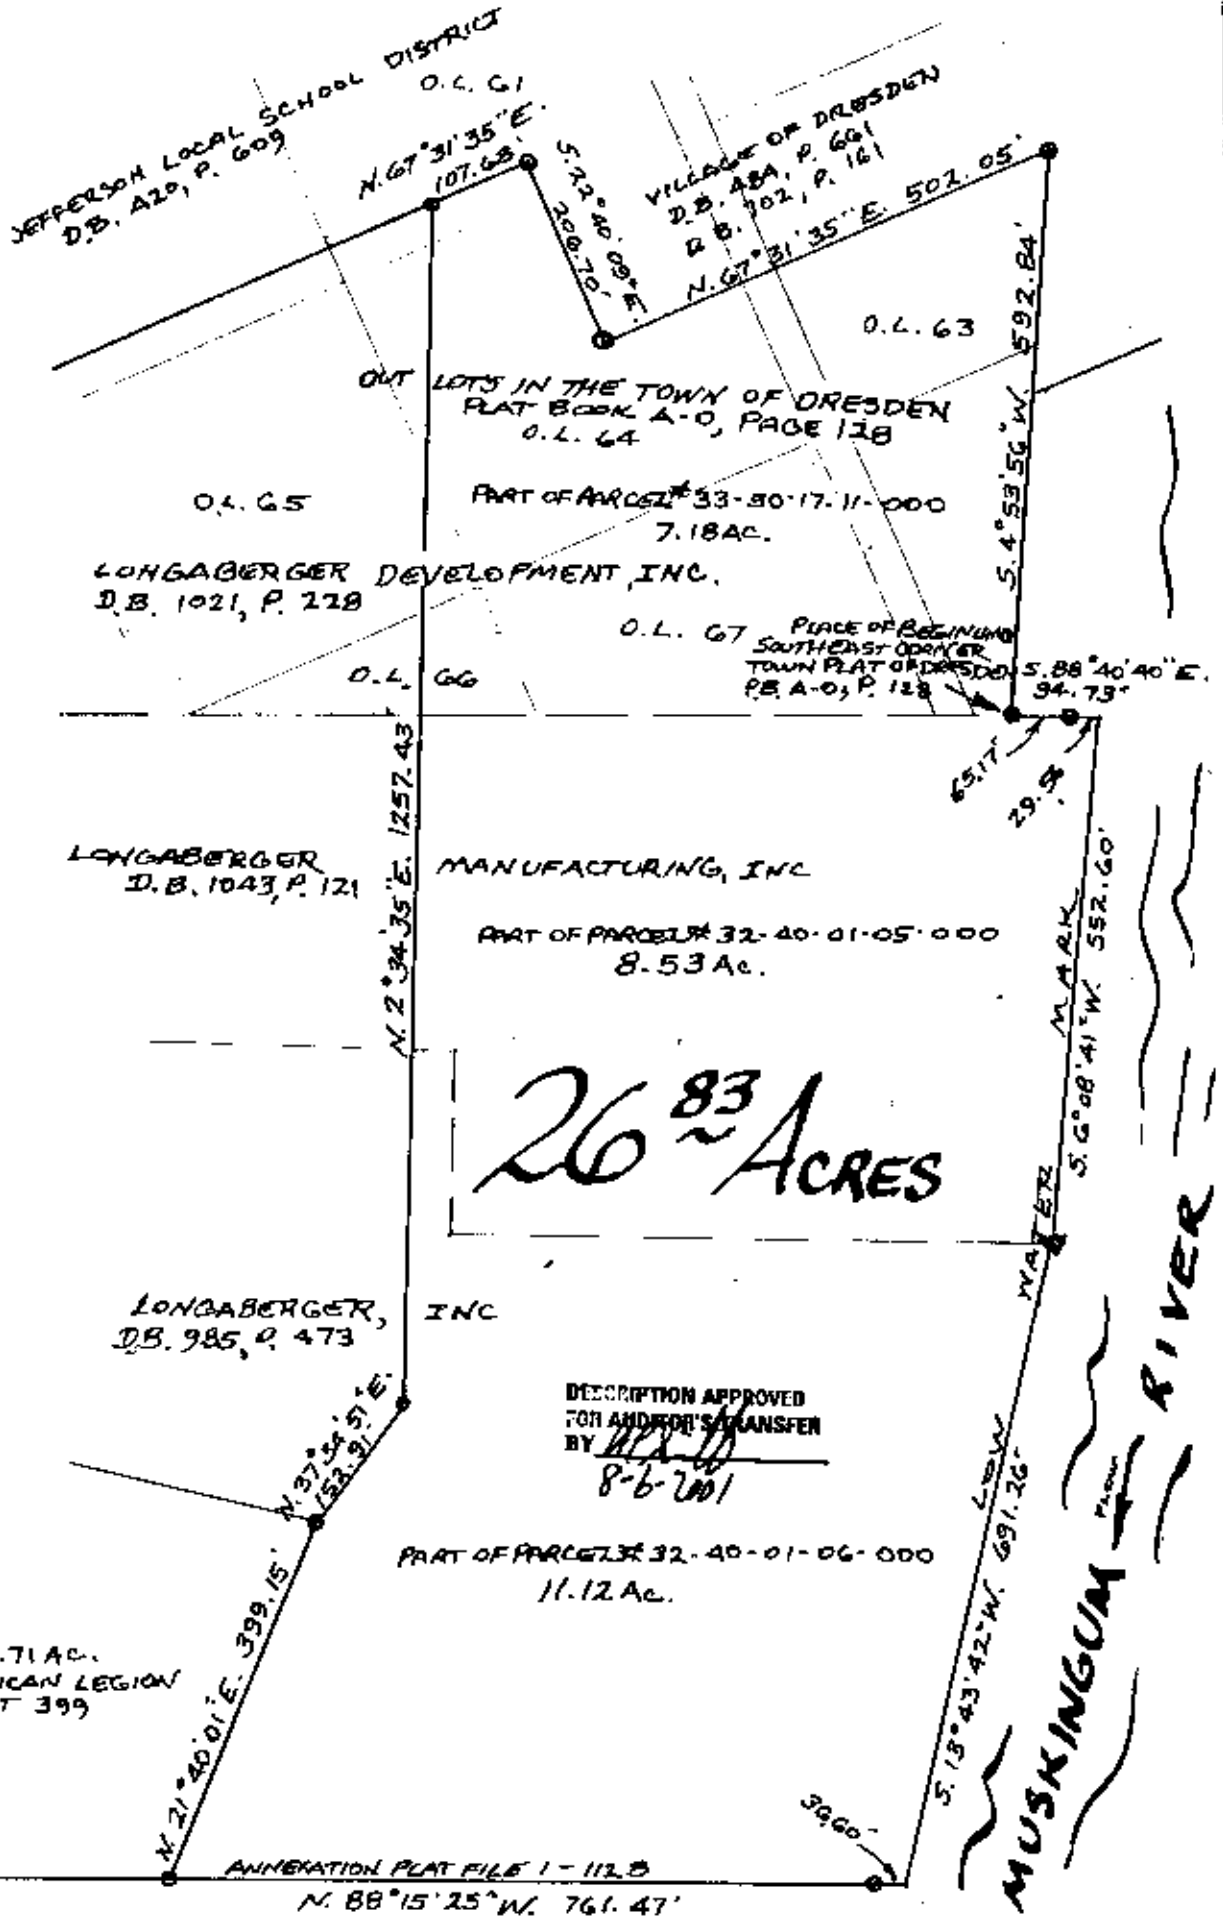 JEFFERSON LOCAL SCHOOL DISTRICT
D.B. A20, P. 609
O.L. 61
N. 67°31'35" E.
107.68'
S. 22°40'09" E.
206.70'
VILLAGE OF DRESDEN
D.B. 48A, P. 661
D.B. 702, P. 161
N. 67°31'35" E. 502.05'
O.L. 63
S. 4°53'56" W. 592.84'
OUT LOTS IN THE TOWN OF DRESDEN
PLAT BOOK A-0, PAGE 128
O.L. 64
O.L. 65
PART OF PARCEL# 33-30-17-11-000
7.18 AC.
LONGABERGER DEVELOPMENT, INC.
D.B. 1021, P. 228
O.L. 67
PLACE OF BEGINNING
SOUTHEAST CORNER
TOWN PLAT OF DRESDEN
P.B. A-0, P. 128
S. 88°40'40" E.
94.73'
O.L. 66
65.17'
29.56
N. 2°34'35" E. 1257.43
LONGABERGER MANUFACTURING, INC
D.B. 1043, P. 121
PART OF PARCEL# 32-40-01-05-000
8.53 Ac.
S. 6°08'41" W. 552.60'
LOW WATER MARK
26 83 ACRES
LONGABERGER, INC
D.B. 985, P. 473
MUSKINGUM RIVER
FLOW
DESCRIPTION APPROVED
FOR AUDITOR'S TRANSFER
BY
8-6-2001
N. 37°54'51" E.
153.91'
PART OF PARCEL# 32-40-01-06-000
11.12 Ac.
S. 13°43'42" W. 691.26'
N. 21°40'01" E. 399.15'
.71 AC.
ICAN LEGION
T 399
39.60'
ANNEXATION PLAT FILE 1-112B
N. 88°15'25" W. 761.47'